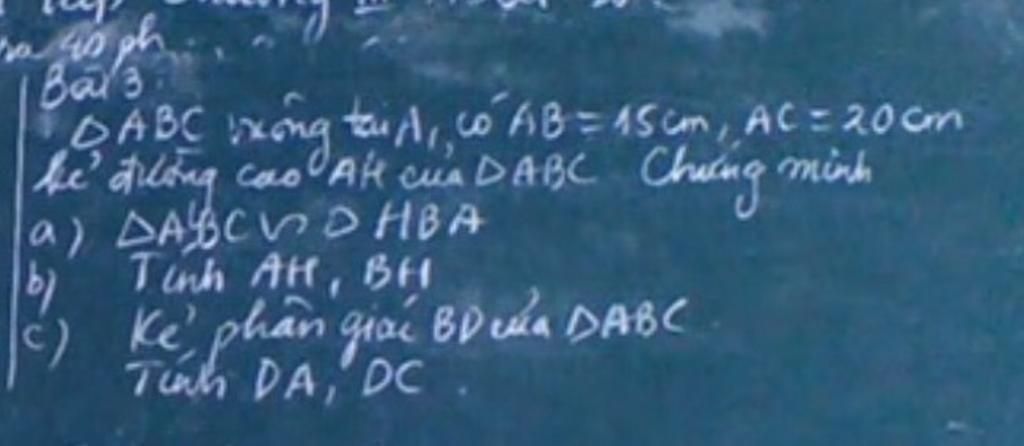 40 ph
Bài 3:
ΔABC vuông tại A, có AB = 15cm, AC = 20cm
kẻ đường cao AH của ΔABC Chứng minh
a) ΔABC ∽ Δ HBA
b) Tính AH, BH
c) Kẻ phân giác BD của ΔABC.
Tính DA, DC.